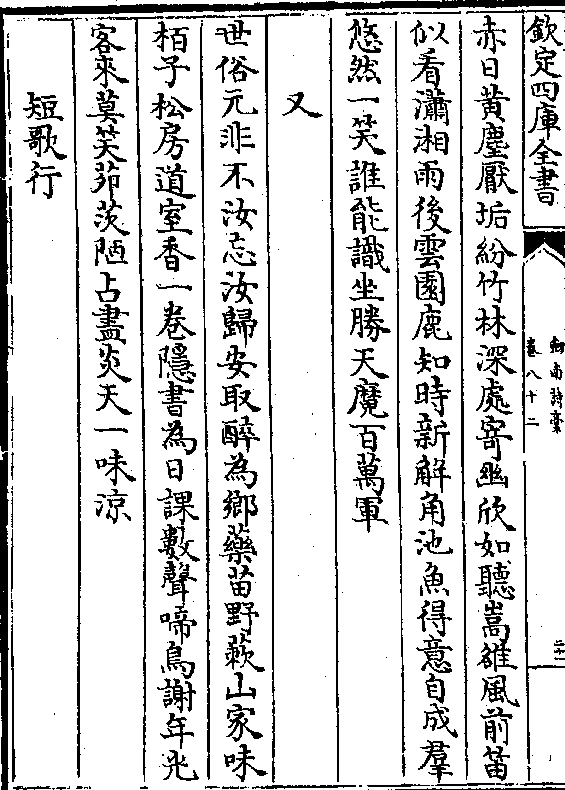 欽定四庫全書
劍南詩藁
卷八十二
二十一
赤日黃塵厭垢紛竹林深處寄幽欣如聽嵩雒風前笛
似看瀟湘雨後雲園鹿知時新解角池魚得意自成羣
悠然一笑誰能識坐勝天魔百萬軍
又
世俗元非不汝忘汝歸安取醉為鄉藥苗野蔌山家味
栢子松房道室香一卷隱書為日課數聲啼鳥謝年光
客來莫笑茆茨陋占盡炎天一味涼
短歌行